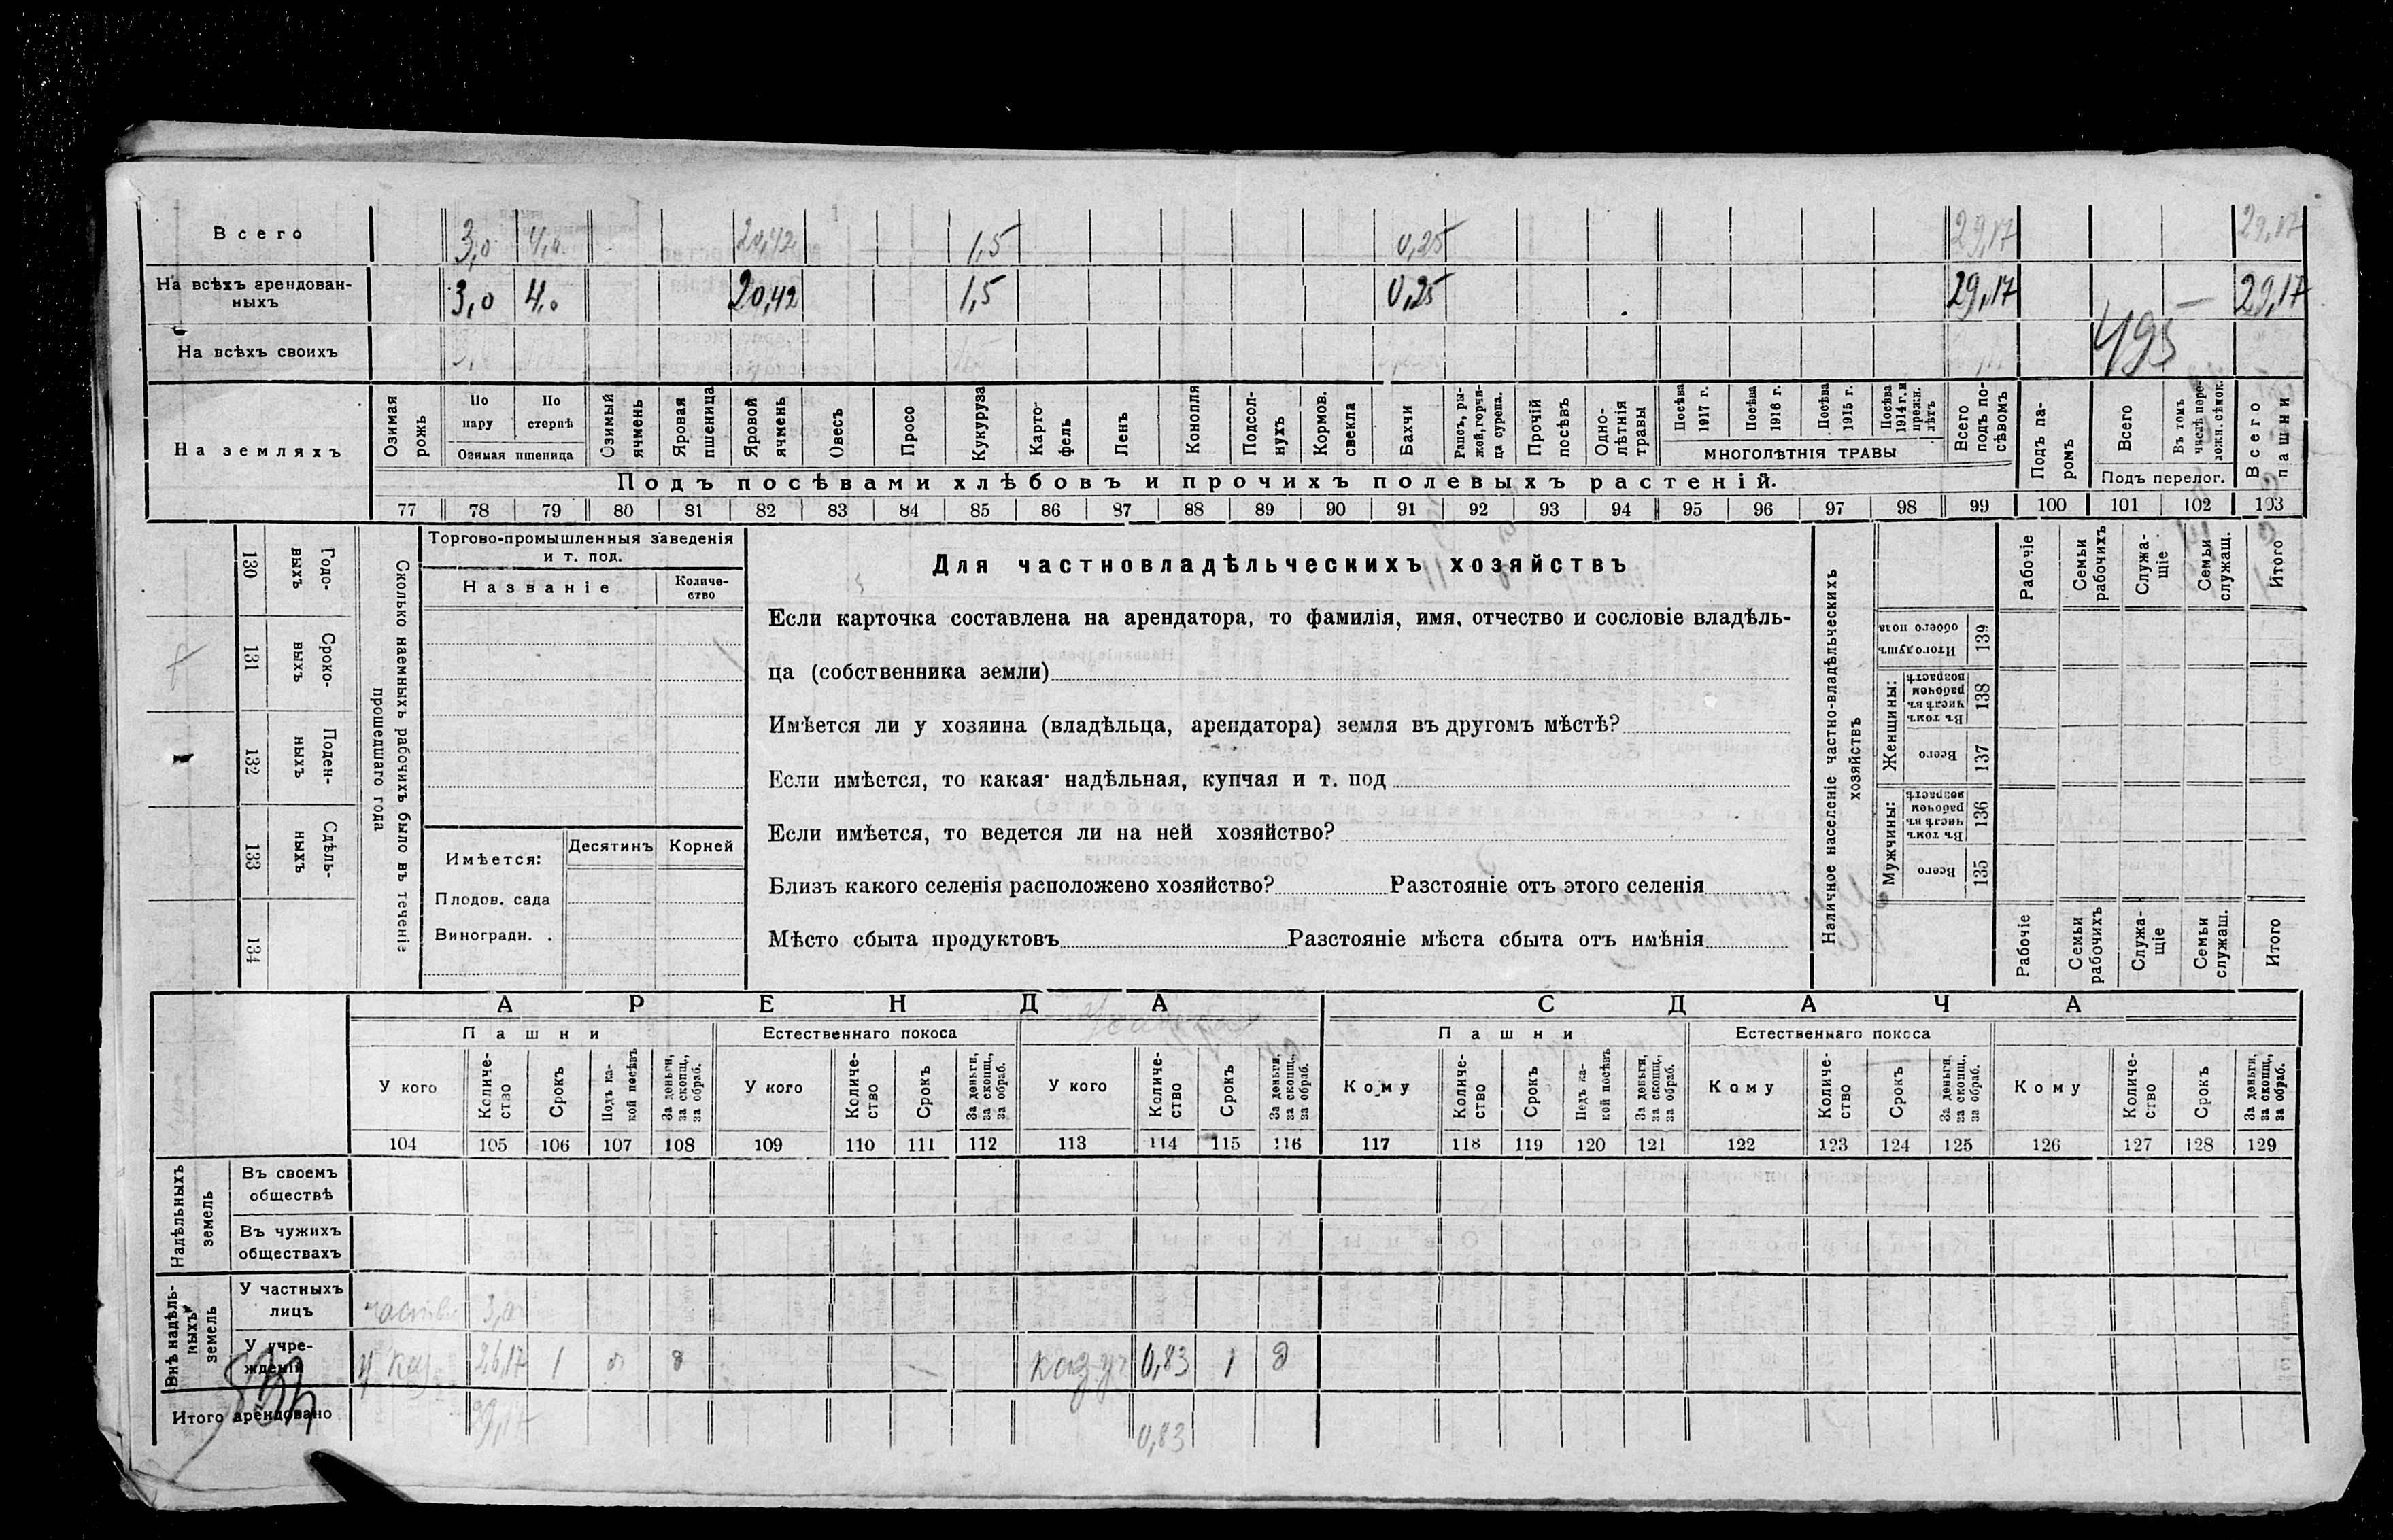 Всего 3,0 4,0 20,42 1,5 0,25 29,17 29,17
На всѣхъ арендован-
ныхъ 3,0 4,0 20,42 1,5 0,25 29,17 29,17
На всѣхъ своихъ 495
На земляхъ
Озимая рожь
По пару
По стернѣ
Озимая пшеница
Озимый ячмень
Яровая пшеница
Яровой ячмень
Овесъ
Просо
Кукуруза
Карто-
фель
Ленъ
Конопля
Подсол-
нухъ
Кормов. свекла
Бахчи
Рапсъ, ры-
жей, горчи-
ца сурепа.
Прочій посѣвъ
Одно-
лѣтнія травы
Посѣва 1917 г.
Посѣва 1916 г.
Посѣва 1915 г.
Посѣва 1914 г. и прежн. лѣтъ
МНОГОЛѢТНІЯ ТРАВЫ
Всего подъ по-
сѣвомъ
Подъ па-
ромъ
Всего
Въ томъ числѣ пере-
ложн. сѣнок.
Подъ перелог.
Всего пашни
Подъ посѣвами хлѣбовъ и прочихъ полевыхъ растеній.
77 78 79 80 81 82 83 84 85 86 87 88 89 90 91 92 93 94 95 96 97 98 99 100 101 102 103
130 Годо-
выхъ
131 Сроко-
выхъ
132 Поден-
ныхъ
133 Сдѣль-
ныхъ
134
Сколько наемныхъ рабочихъ было въ теченіе
прошедшаго года
Торгово-промышленныя заведенія
и т. под.
Названіе
Количе-
ство
Имѣется:
Десятинъ Корней
Плодов. сада
Виноградн. .
Для частновладѣльческихъ хозяйствъ
Если карточка составлена на арендатора, то фамилія, имя, отчество и сословіе владѣль-
ца (собственника земли)
Имѣется ли у хозяина (владѣльца, арендатора) земля въ другомъ мѣстѣ?
Если имѣется, то какая· надѣльная, купчая и т. под
Если имѣется, то ведется ли на ней хозяйство?
Близъ какого селенія расположено хозяйство? Разстояніе отъ этого селенія
Мѣсто сбыта продуктовъ Разстояніе мѣста сбыта отъ имѣнія
Наличное населеніе частно-владѣльческихъ
хозяйствъ
Рабочіе
Семьи рабочихъ
Служа-
щіе
Семьи служащ.
Итого
Итого душъ обоего пола 139
Женщины:
Въ томъ числѣ въ рабочем возрастѣ 138
Всего 137
Мужчины:
Въ томъ числѣ въ рабочемъ возрастѣ 136
Всего 135
Рабочіе
Семьи рабочихъ
Служа-
щіе
Семьи служащ.
Итого
АРЕНДА
СДАЧА
Пашни
Естественнаго покоса
Пашни
Естественнаго покоса
У кого
Количе-
ство
Срокъ
Подъ ка-
кой посѣвъ
За деньги, за скопщ., за обраб.
У кого
Количе-
ство
Срокъ
За деньги, за скопщ., за обраб.
У кого
Количе-
ство
Срокъ
За деньги, за скопщ., за обраб.
Кому
Количе-
ство
Срокъ
Подъ ка-
кой посѣвъ
За деньги, за скопщ., за обраб.
Кому
Количе-
ство
Срокъ
За деньги, за скопщ., за обраб.
Кому
Количе-
ство
Срокъ
За деньги, за скопщ., за обраб.
104 105 106 107 108 109 110 111 112 113 114 115 116 117 118 119 120 121 122 123 124 125 126 127 128 129
Надѣльныхъ земель
Въ своемъ
обществѣ
Въ чужихъ
обществахъ
Внѣ надѣль-
ныхъ земель
У частныхъ
лицъ 3,0
У учре-
жденій у каз. 26,17 1 каз. уч 0,83 1 д
Итого арендовано 29,17 0,83